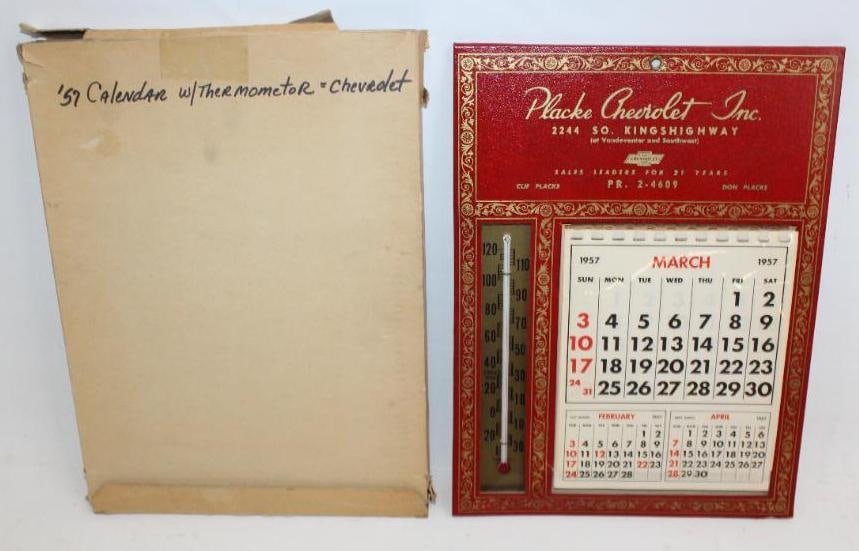 '57 Calendar w/Thermometor = Chevrolet
Placke Chevrolet Inc.
2244 SO. KINGSHIGHWAY
(at Vandeventer and Southwest)
CHEVROLET
SALES LEADERS FOR 21 YEARS
CLIF PLACKE PR. 2-4609 DON PLACKE
120
110
100
90
80
70
60
50
40
30
20
10
0
20
30
1957 MARCH 1957
SUN MON TUE WED THU FRI SAT
1 2
3 4 5 6 7 8 9
10 11 12 13 14 15 16
17 18 19 20 21 22 23
24 31 25 26 27 28 29 30
FEBRUARY 1957
SUN MON TUE WED THU FRI SAT
1 2
3 4 5 6 7 8 9
10 11 12 13 14 15 16
17 18 19 20 21 22 23
24 25 26 27 28
APRIL 1957
SUN MON TUE WED THU FRI SAT
1 2 3 4 5 6
7 8 9 10 11 12 13
14 15 16 17 18 19 20
21 22 23 24 25 26 27
28 29 30